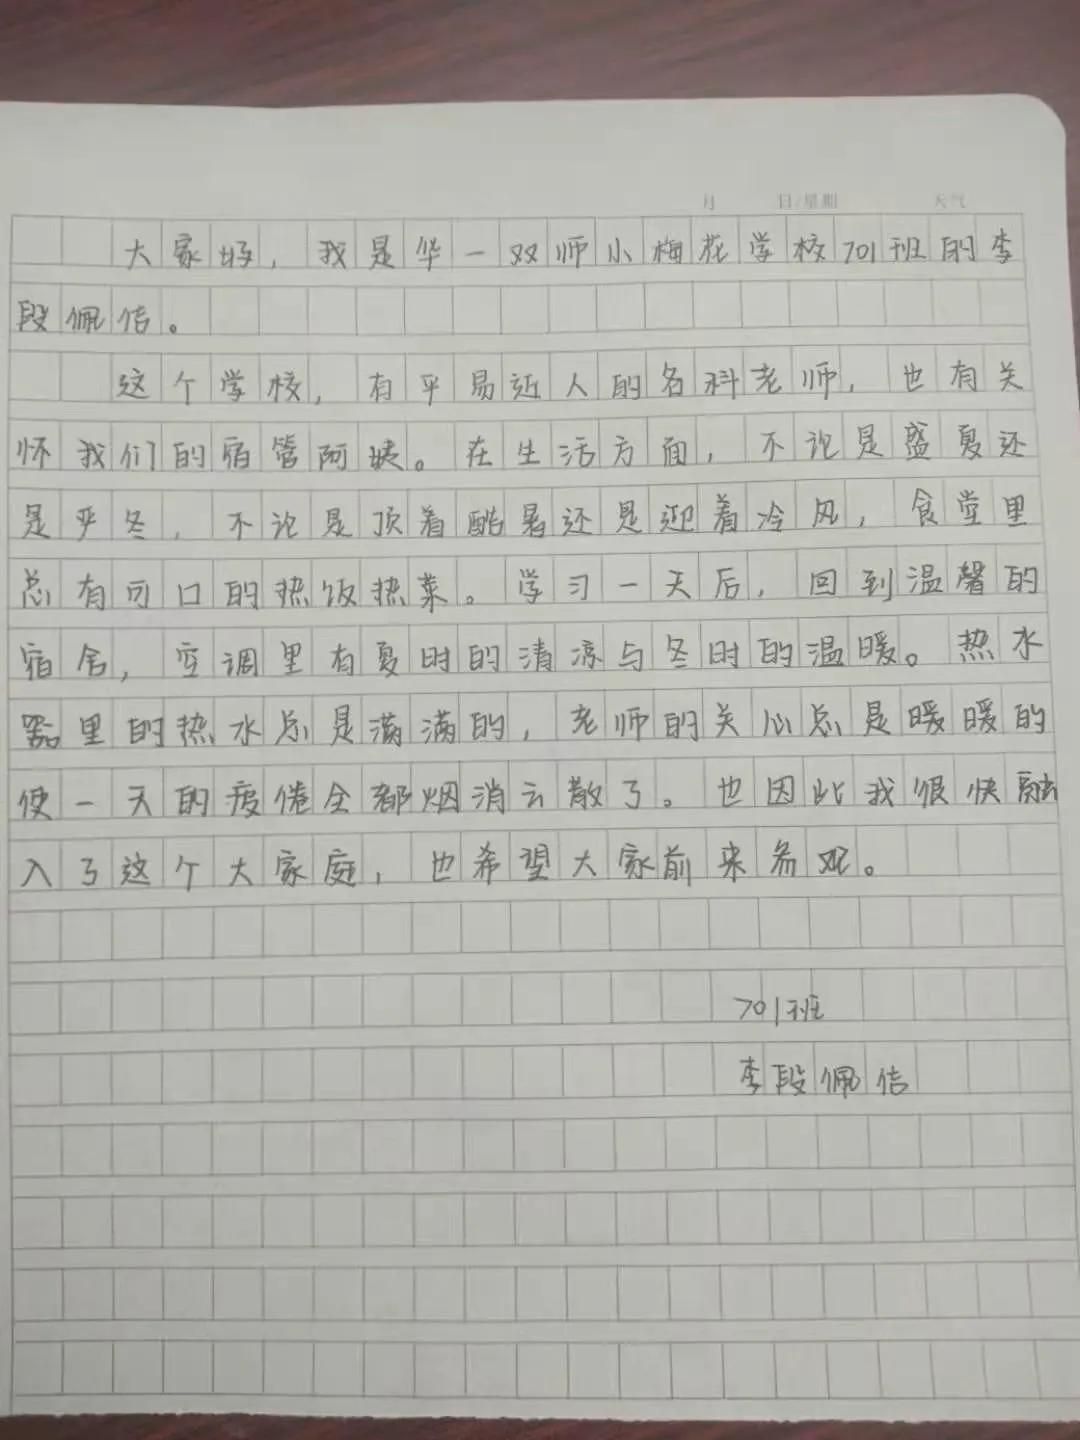 月 日/星期 天气
大家好,我是华一双师小梅花学校701班的李
段佩佶。
这个学校,有平易近人的各科老师,也有关
怀我们的宿管阿姨。在生活方面,不论是盛夏还
是严冬,不论是顶着酷暑还是迎着冷风,食堂里
总有可口的热饭热菜。学习一天后,回到温馨的
宿舍,空调里有夏时的清凉与冬时的温暖。热水
器里的热水总是满满的,老师的关心总是暖暖的
使一天的疲倦全都烟消云散了。也因此我很快融
入了这个大家庭,也希望大家前来参观。
701班
李段佩佶